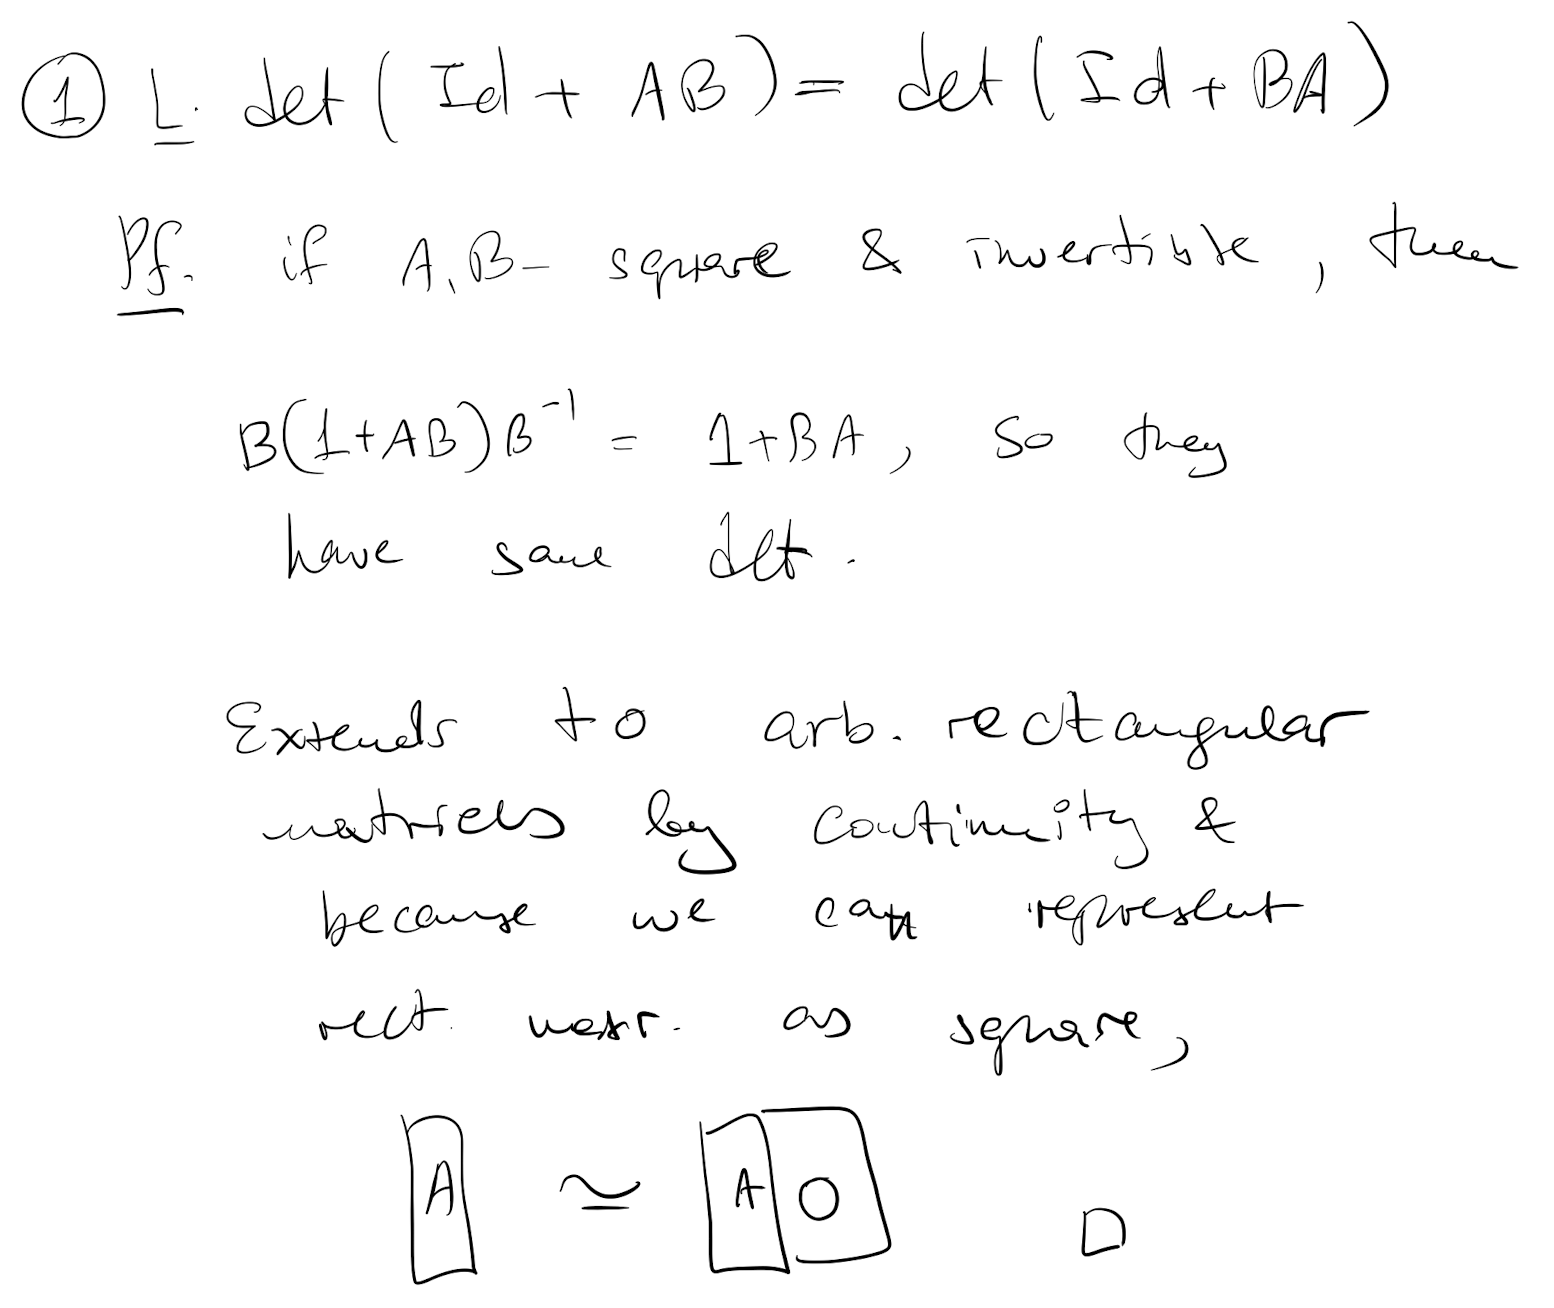 ① L. det ( Id + AB ) = det ( Id + BA )
Pf. if A, B - square & invertible, then
B(1+AB)B⁻¹ = 1+BA, so they
have same det.
Extends to arb. rectangular
matrices by continuity &
because we can represent
rect. matr. as square,
A ≃ A 0 □